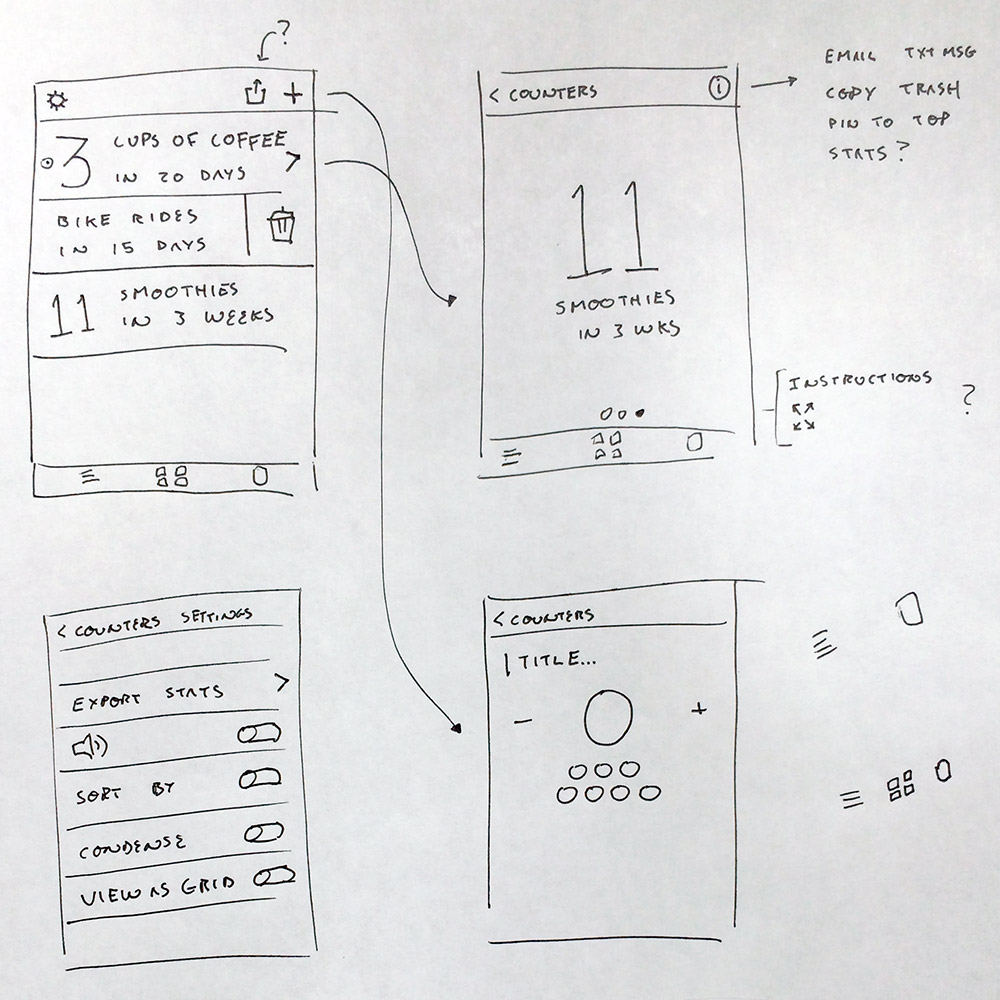 ?
+
3 CUPS OF COFFEE >
IN 20 DAYS
BIKE RIDES
IN 15 DAYS
11 SMOOTHIES
IN 3 WEEKS
< COUNTERS i
11
SMOOTHIES
IN 3 WKS
EMAIL TXT MSG
COPY TRASH
PIN TO TOP
STATS?
INSTRUCTIONS ?
< COUNTERS SETTINGS
EXPORT STATS >
SORT BY
CONDENSE
VIEW AS GRID
< COUNTERS
| TITLE...
- +